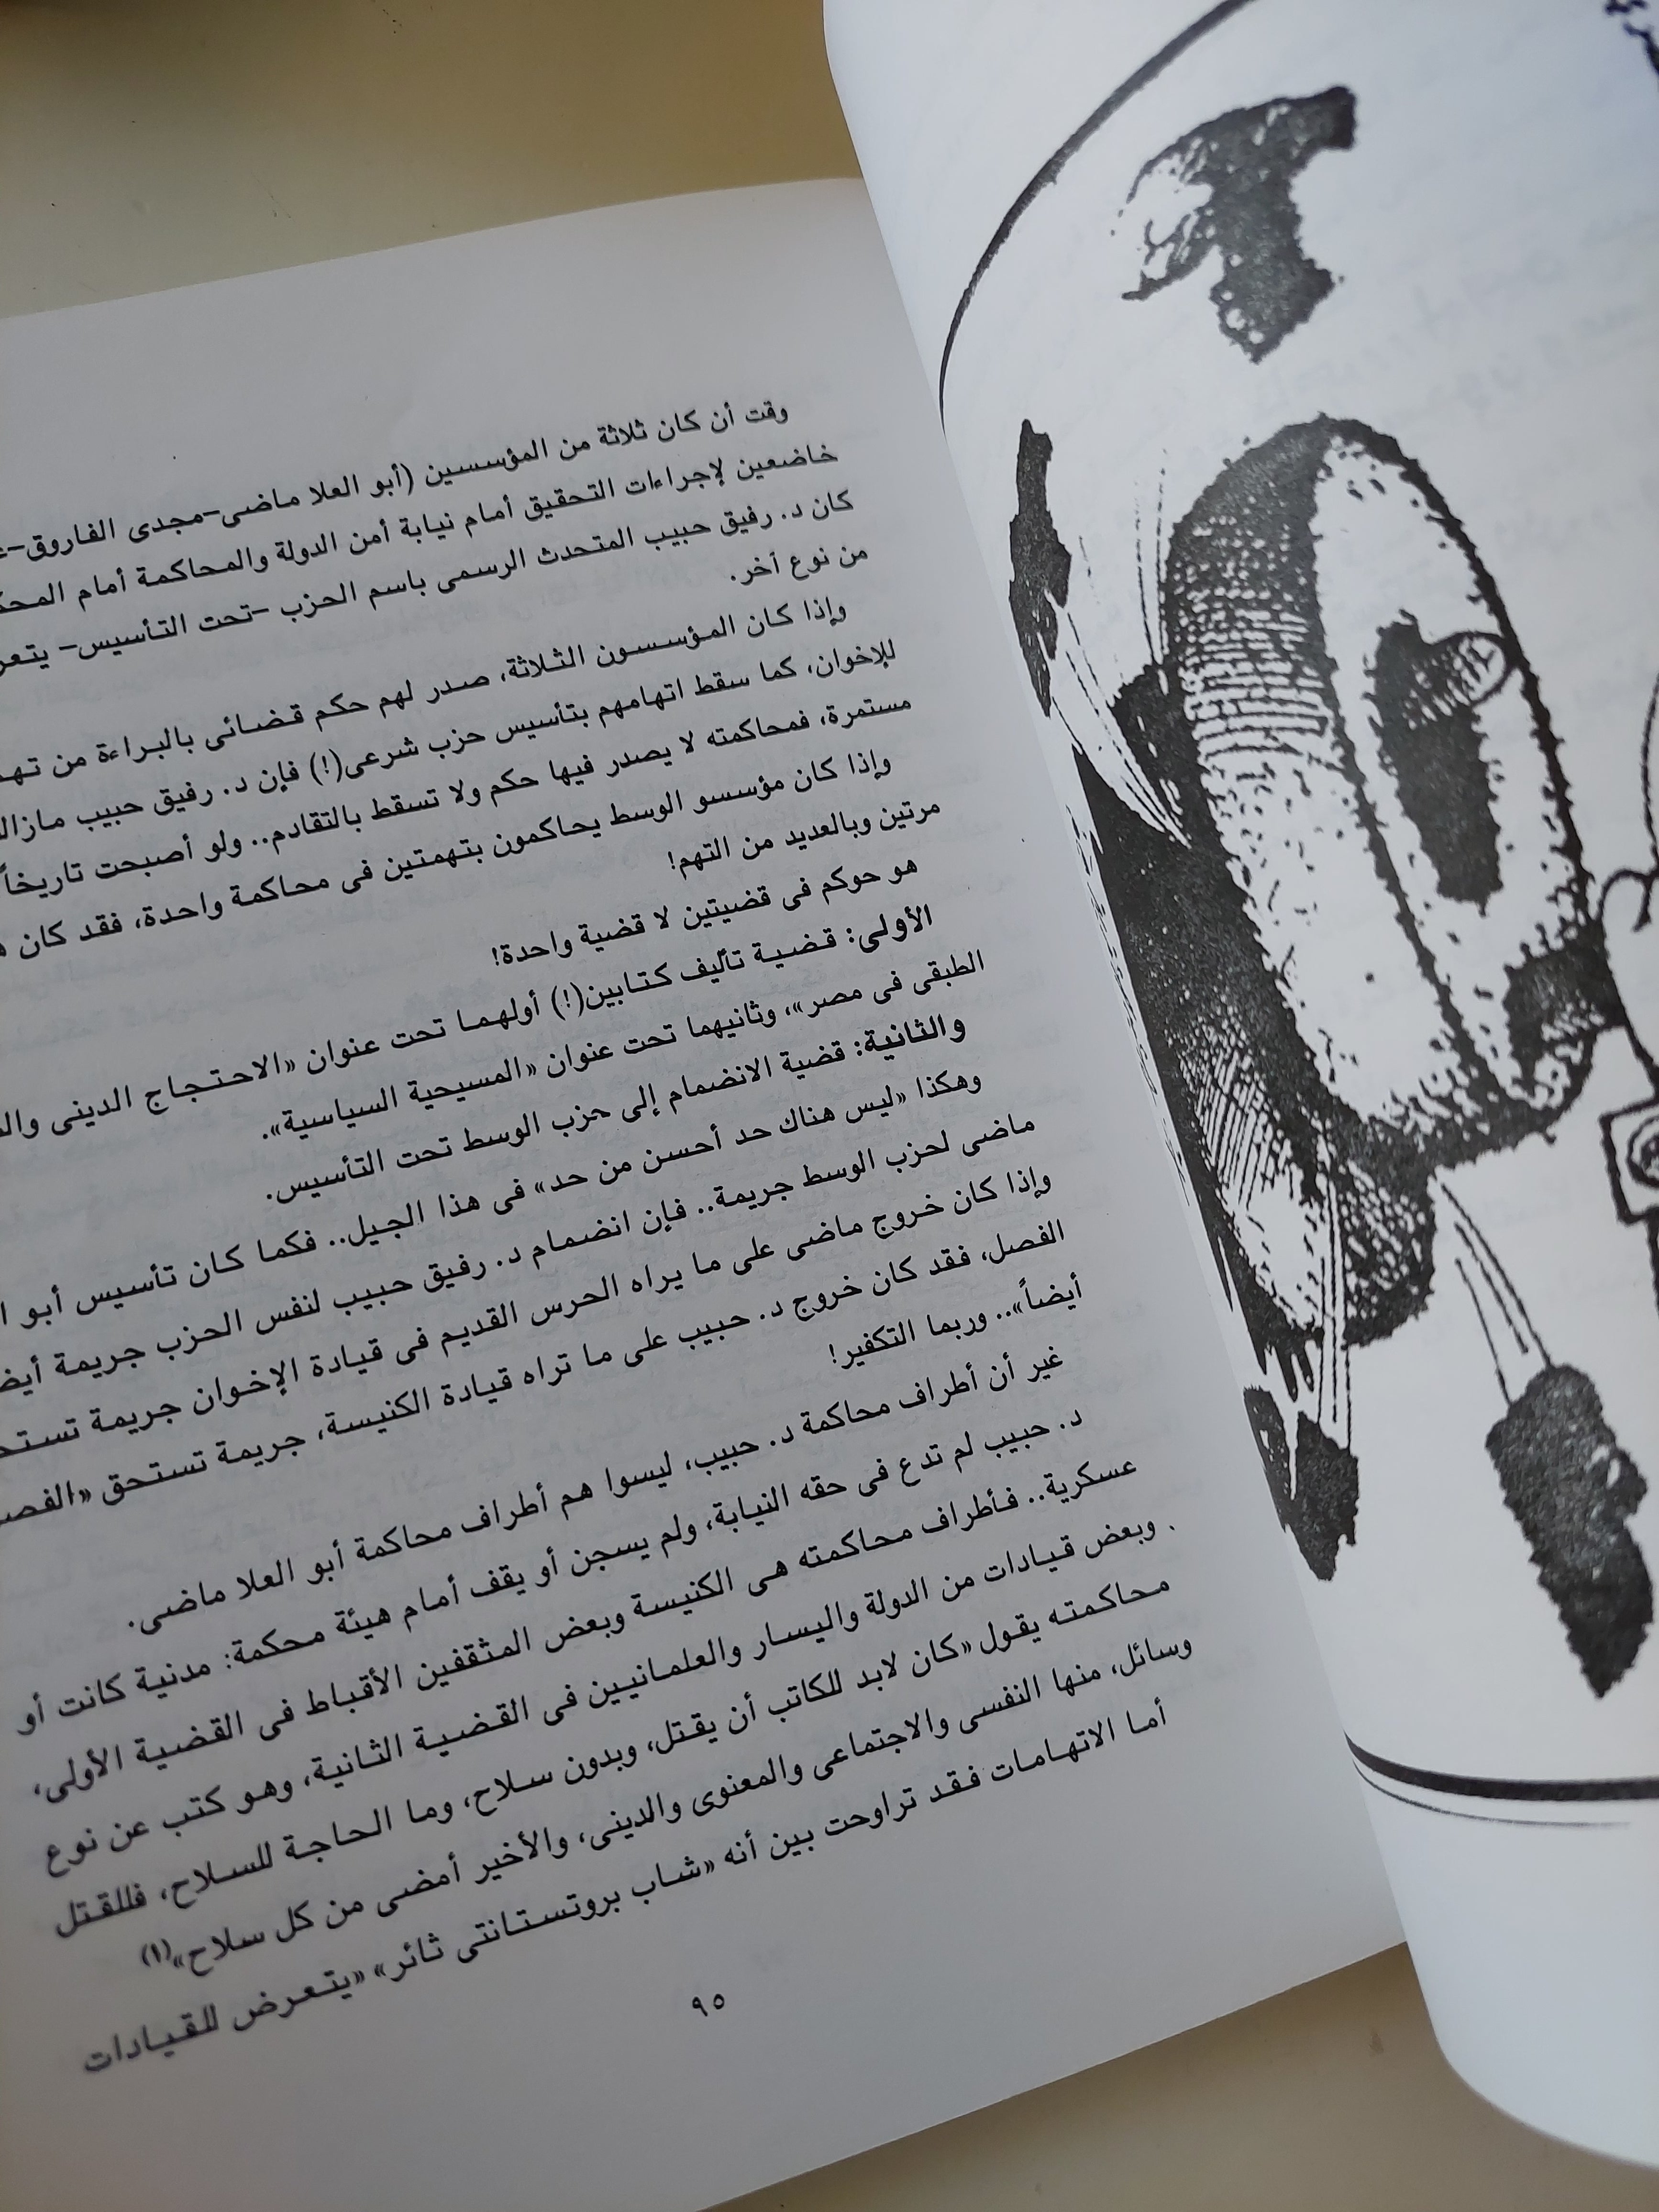 وقت أن كان ثلاثة من المؤسسين (أبو العلا ماضى-مجدى الفاروق-
خاضعين لإجراءات التحقيق أمام نيابة أمن الدولة والمحاكمة أمام
كان د. رفيق حبيب المتحدث الرسمى باسم الحزب -تحت التأسيس-
من نوع آخر.
وإذا كان المؤسسون الثلاثة، صدر لهم حكم قضائى بالبراءة من
للإخوان، كما سقط اتهامهم بتأسيس حزب شرعى(!) فإن د. رفيق حبيب
مستمرة، فمحاكمته لا يصدر فيها حكم ولا تسقط بالتقادم.. ولو أصبحت تاريخاً
وإذا كان مؤسسو الوسط يحاكمون بتهمتين فى محاكمة واحدة، فقد كان
مرتين وبالعديد من التهم!
هو حوكم فى قضيتين لا قضية واحدة!
الأولى: قضية تأليف كتابين(!) أولهما تحت عنوان «الاحتجاج الدينى
الطبقى فى مصر»، وثانيهما تحت عنوان «المسيحية السياسية».
والثانية: قضية الانضمام إلى حزب الوسط تحت التأسيس.
وهكذا «ليس هناك حد أحسن من حد» فى هذا الجيل.. فكما كان تأسيس أبو
ماضى لحزب الوسط جريمة.. فإن انضمام د. رفيق حبيب لنفس الحزب جريمة
وإذا كان خروج ماضى على ما يراه الحرس القديم فى قيادة الإخوان جريمة
الفصل، فقد كان خروج د. حبيب على ما تراه قيادة الكنيسة، جريمة تستحق
أيضاً».. وربما التكفير!
غير أن أطراف محاكمة د. حبيب، ليسوا هم أطراف محاكمة أبو العلا ماضى.
د. حبيب لم تدع فى حقه النيابة، ولم يسجن أو يقف أمام هيئة محكمة: مدنية كانت أو
عسكرية.. فأطراف محاكمته هى الكنيسة وبعض المثقفين الأقباط فى القضية الأولى،
وبعض قيادات من الدولة واليسار والعلمانيين فى القضية الثانية، وهو كتب عن نوع
محاكمته يقول «كان لابد للكاتب أن يقتل، وبدون سلاح، وما الحاجة للسلاح، فللقتل
وسائل، منها النفسى والاجتماعى والمعنوى والدينى، والأخير أمضى من كل سلاح»(١)
أما الاتهامات فقد تراوحت بين أنه «شاب بروتستانتى ثائر» «يتعرض للقيادات
٩٥